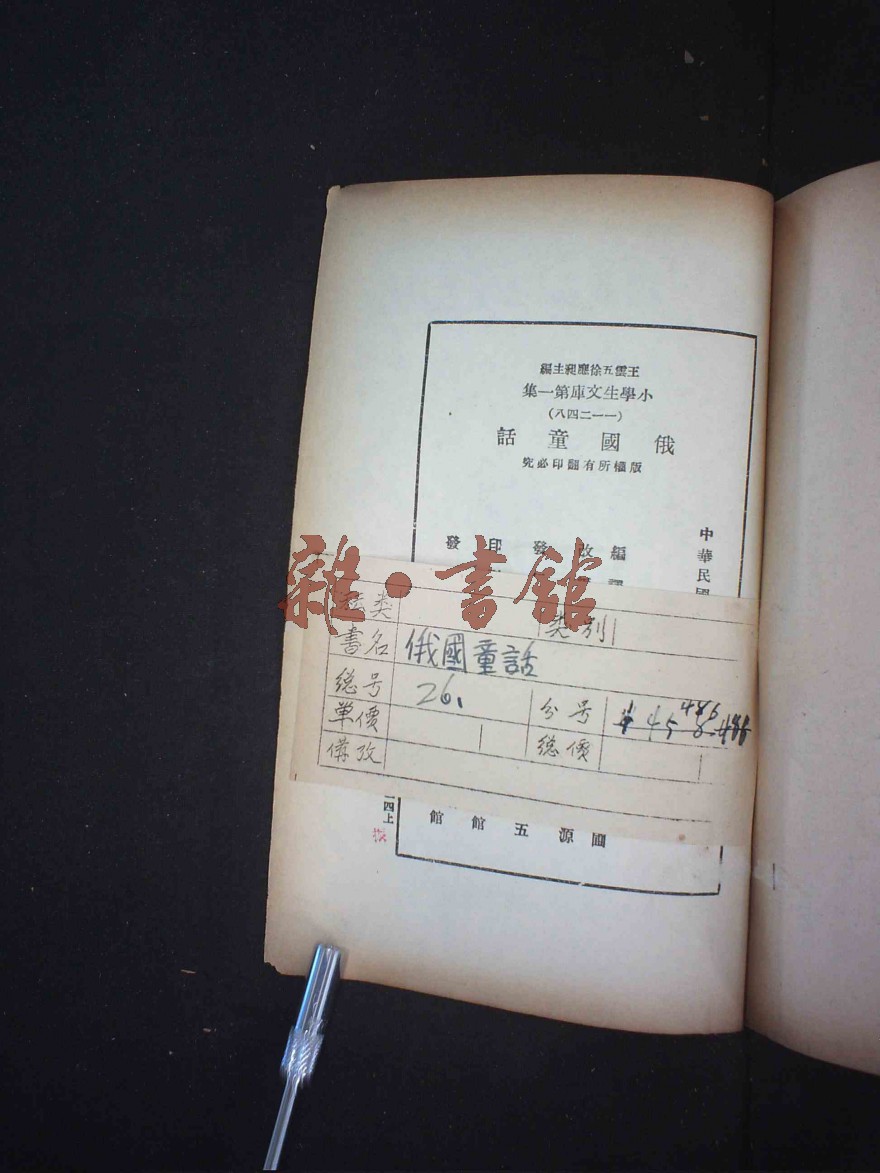 王雲五徐應昶主編
小學生文庫第一集
(一一二四八)
俄國童話
版權所有翻印必究
中華民國
編
改譯
發
印
發
圃
源
五
館
館
四上
雜·書館
类别
書名 俄國童話
總号 26.
分号
單價
總價
備攷